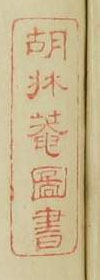 胡牀菴圖書